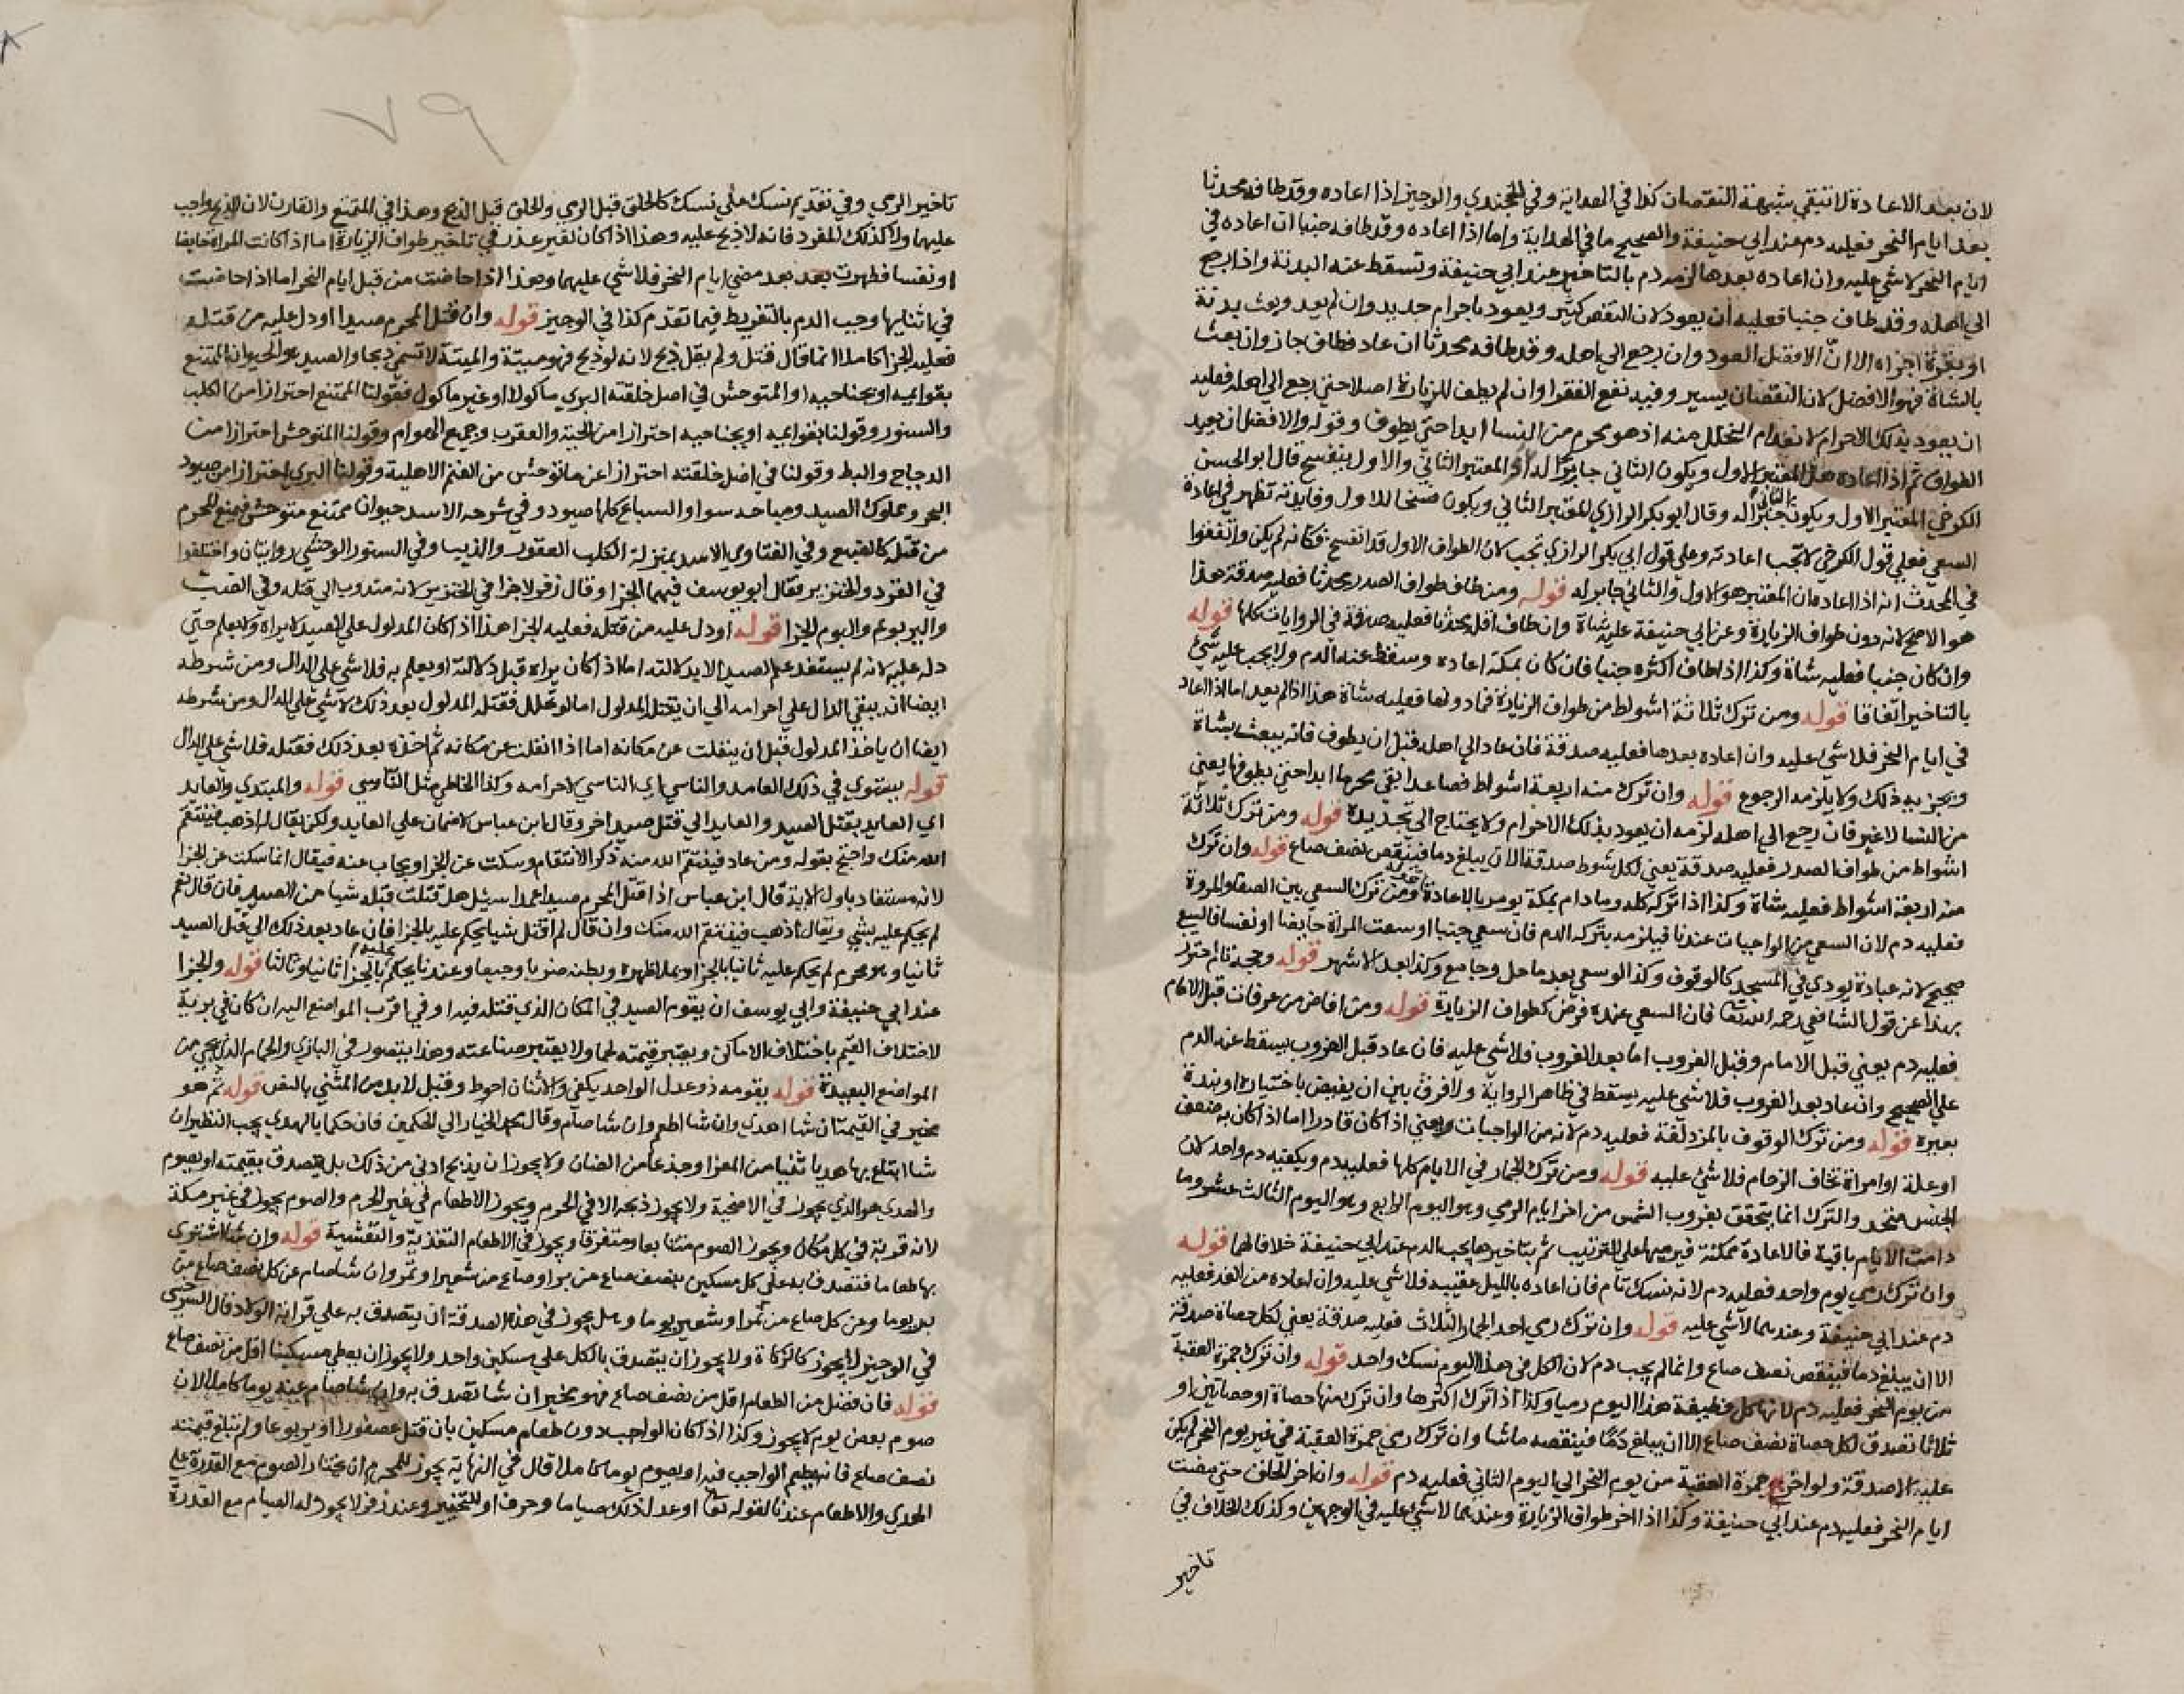 لان بعد الاعادة لا تبقي شبهة النقصان كذا في الهداية وفي الخجندي والوجيز اذا اعاده وقد طافه محدثا
بعد ايام النحر فعليه دم عند ابي حنيفة والصحيح ما في الهداية واما اذا اعاده وقد طافه جنبا ان اعاده في
ايام النحر لا شي عليه وان اعاده بعدها لزمه دم بالتاخير عند ابي حنيفة وتسقط عنه البدنة واذا رجع
الي اهله وقد طاف جنبا فعليه أن يعود لان النقص كثير ويعود باحرام جديد وان لم يعد وبعث بدنة
او بقرة اجزاه الا انّ الافضل العود وان رجع الي اهله وقد طافه محدثا ان عاد فطاف جاز وان بعث
بالشاة فهو الافضل لان النقصان يسير وفيه نفع الفقرا وان لم يطف للزيارة اصلا حتي رجع الي اهله فعليه
ان يعود بذلك الاحرام لانعدام التحلل منه اذ هو محرم من النسا ابدا حتي يطوف وقوله والافضل ان يعيد
الطواف ثم اذا اعاده هل المعتبر الاول ويكون الثاني جابرا له او المعتبر الثاني والاول ينفسخ قال ابو الحسن
الكرخي المعتبر الاول ويكون الثاني جبرا له وقال ابو بكر الرازي المعتبر الثاني ويكون فسخا للاول وفايدته تظهر في اعادة
السعي فعلي قول الكرخي لا تجب اعادته وعلي قول ابي بكر الرازي تجب لان الطواف الاول قد انفسخ فكانه لم يكن واتفقوا
في المحدث انه اذا اعاده ان المعتبر هو الاول والثاني جابر له قوله ومن طاف طواف الصدر محدثا فعليه صدقة هذا
هو الاصح لانه دون طواف الزيارة وعن ابي حنيفة عليه شاة وان طاف اقله محدثا فعليه صدقة في الروايات كلها قوله
وان كان جنبا فعليه شاة وكذا اذا طاف اكثره جنبا فان كان بمكة اعاده وسقط عنه الدم ولا يجب عليه شئ
بالتاخير اتفاقا قوله ومن ترك ثلاثة اشواط من طواف الزيارة فما دونها فعليه شاة هذا اذا لم يعد اما اذا اعاد
في ايام النحر فلا شي عليه وان اعاده بعدها فعليه صدقة فان عاد الي اهله قبل ان يطوف فانه يبعث بشاة
وتجزيه ذلك ولا يلزمه الرجوع قوله وان ترك منه اربعة اشواط فصاعدا بقي محرما ابدا حتي يطوفها يعني
من النسا لا غير فان رجع الي اهله لزمه ان يعود بذلك الاحرام ولا يحتاج الي تجديده قوله ومن ترك ثلاثة
اشواط من طواف الصدر فعليه صدقة يعني لكل شوط صدقة الا ان يبلغ دما فينقص نصف صاع قوله وان ترك
منه اربعة اشواط فعليه شاة وكذا اذا تركه كله وما دام بمكة يومر بالاعادة ومن ترك السعي بين الصفا والمروة
فعليه دم لان السعي من الواجبات عندنا فيلزمه بتركه الدم فان سعي جنبا او سعت المراة حايضا او نفسا فالسعي
صحيح لانه عبادة تودي في المسجد كالوقوف وكذا لو سعي بعد ما حل وجامع وكذا بعد الاشهر قوله وحجه تام احترز
بهذا عن قول الشافعي رحمه الله تعا فان السعي عنده فرض كطواف الزيارة قوله ومن افاض من عرفات قبل الامام
فعليه دم يعني قبل الامام وقبل الغروب اما بعد الغروب فلا شي عليه فان عاد قبل الغروب يسقط عنه الدم
علي الصحيح وان عاد بعد الغروب فلا شي عليه يسقط في ظاهر الرواية ولا فرق بين ان يفيض باختياره او ندة
بعيره قوله ومن ترك الوقوف بالمزدلفة فعليه دم لانه من الواجبات يعني اذا كان قادرا اما اذا كان به ضعف
او علة او امراة تخاف الزحام فلا شئ عليه قوله ومن ترك الجمار في الايام كلها فعليه دم ويكفيه دم واحد لان
الجنس متحد والترك انما يتحقق بغروب الشمس من اخر ايام الرمي وهو اليوم الرابع وهو اليوم الثالث عشر وما
دامت الايام باقية فالاعادة ممكنة فيرميها علي الترتيب ثم بتاخيرها يجب الدم عند ابي حنيفة خلافا لهما قوله
وان ترك رمي يوم واحد فعليه دم لانه نسك تام فان اعاده بالليل عقيبه فلا شي عليه وان اعاده من الغد فعليه
دم عند ابي حنيفة وعندهما لا شي عليه قوله وان ترك رمي احد الجمار الثلاث فعليه صدقة يعني لكل حصاة صدقة
الا ان يبلغ دما فينقص نصف صاع وانما لم يجب دم لان الكل في هذا اليوم نسك واحد قوله وان ترك جمرة العقبة
من يوم النحر فعليه دم لانها كل وظيفة هذا اليوم رميا وكذا اذا ترك اكثرها وان ترك منها حصاة او حصاتين او
ثلاثا تصدق لكل حصاة نصف صاع الا ان يبلغ دمًا فينقصه ما شا وان ترك رمي جمرة العقبة في غير يوم النحر لم يكن
عليه الا صدقة ولو اخر جمرة العقبة من يوم النحر الي اليوم الثاني فعليه دم قوله وان اخر الحلق حتي مضت
ايام النحر فعليه دم عند ابي حنيفة وكذا اذا اخر طواف الزيارة وعندهما لا شي عليه في الوجهين وكذلك الخلاف في
تاخير
٧٩
تاخير الرمي وفي تقديم نسك علي نسك كالحلق قبل الرمي والحلق قبل الذبح وهذا في المتمتع والقارن لان الذبح واجب
عليهما ولا كذلك المفرد فانه لا ذبح عليه وهذا اذا كان لغير عذر في تاخير طواف الزيارة اما اذا كانت المراة حايضا
او نفسا فطهرت بعد مضي ايام النحر فلا شي عليهما وهذا اذا حاضت من قبل ايام النحر اما اذا حاضت
في اثنايها وجب الدم بالتفريط فيما تقدم كذا في الوجيز قوله وان قتل المحرم صيدا او دل عليه من قتله
فعليه الجزا كاملا انما قال قتل ولم يقل ذبح لانه لو ذبح فهو ميتة والميتة لا تسمي ذبحا والصيد هو الحيوان الممتنع
بقوايمه او بجناحيه والمتوحش في اصل خلقته البري ماكولا او غير ماكول فقولنا الممتنع احترازا من الكلب
والسنور وقولنا بقوايمه او بجناحيه احترازا من الحية والعقرب وجميع الهوام وقولنا المتوحش احترازا من
الدجاج والبط وقولنا في اصل خلقته احترازا عن ما توحش من الغنم الاهلية وقولنا البري احترازا من صيود
البحر ومملوك الصيد ومباحه سوا والسباع كلها صيود وفي شرحه الاسد حيوان ممتنع متوحش فيمنع المحرم
من قتله كالضبع وفي الفتاوي الاسد بمنزلة الكلب العقور والذيب وفي السنور الوحشي روايتان واختلفوا
في القرد والخنزير فقال ابو يوسف فيهما الجزا وقال زفر لا جزا في الخنزير لانه مندوب الي قتله وفي الضب
واليربوع والبوم الجزا قوله او دل عليه من قتله فعليه الجزا هذا اذا كان المدلول علي الصيد لا يراه ولا يعلم حتي
دله عليه لانه لم يستفد علم الصيد الا بدلالته اما اذا كان يراه قبل دلالته او يعلم به فلا شي علي الدال ومن شرطه
ايضا انه يبقي الدال علي احرامه الي ان يقتل المدلول اما لو تحلل فقتله المدلول بعد ذلك لا شي علي الدال ومن شرطه
ايضا ان ياخذ المدلول قبل ان ينفلت عن مكانه اما اذا انفلت عن مكانه ثم اخذه بعد ذلك فقتله فلا شي علي الدال
قوله يستوي في ذلك العامد والناسي اي الناسي لاحرامه وكذا الخاطي مثل الناسي قوله والمبتدي والعايد
اي العايد بقتل الصيد والعايد الي قتل صيد اخر وقال ابن عباس لا ضمان علي العايد ولكن يقال له اذهب فينتقم
الله منك واحتج بقوله ومن عاد فينتقم الله منه ذكر الانتقام وسكت عن الجزا ويجاب عنه فيقال انما سكت عن الجزا
لانه مستفاد باول الاية قال ابن عباس اذا قتل المحرم صيدا عمدا سيل هل قتلت قبله شيا من الصيد فان قال نعم
لم يحكم عليه بشي ويقال له اذهب فينتقم الله منك وان قال لم اقتل شيا يحكم عليه بالجزا فان عاد بعد ذلك الي قتل الصيد
ثانيا وهو محرم لم يحكم عليه ثانيا بالجزا ويملا ظهره وبطنه ضربا وجيعا وعندنا يحكم عليه بالجزا ثانيا وثالثا قوله والجزا
عند ابي حنيفة وابي يوسف ان يقوم الصيد في المكان الذي قتله فيه او في اقرب المواضع اليه ان كان في برية
لاختلاف القيم باختلاف الاماكن ويعتبر قيمته لحما ولا يعتبر صناعته وهذا يتصور في البازي والحمام الذي يجي من
المواضع البعيدة قوله يقومه ذو عدل الواحد يكفي والاثنان احوط وقيل لا بد من المثني بالنص قوله ثم هو
مخير في القيمة ان شا اهدي وان شا اطعم وان شا صام وقال محمد الخيار الي الحكمين فان حكما بالهدي يجب النظير ان
شا ابتاع بها هديا ثنيا من المعز او جذعا من الضان ولا يجوز ان يذبح ادني من ذلك بل يتصدق بقيمته او يصوم
والهدي هو الذي يجوز في الاضحية ولا يجوز ذبحه الا في الحرم ويجوز الاطعام في غير الحرم والصوم يجوز في غير مكة
لانه قربة في كل مكان ويجوز الصوم متتابعا ومتفرقا ويجوز في الاطعام التغذية والتعشية قوله وان شا اشتري
بها طعاما فتصدق به علي كل مسكين بنصف صاع من بر او صاع من شعير او تمر وان شا صام عن كل نصف صاع من
بر يوما وعن كل صاع من تمر او شعير يوما وهل يجوز في هذه الصدقة ان يتصدق به علي قرابة الولاد قال السرخسي
في الوجيز لا يجوز كالزكاة ولا يجوز ان يتصدق بالكل علي مسكين واحد ولا يجوز ان يعطي مسكينا اقل من نصف صاع
قوله فان فضل من الطعام اقل من نصف صاع فهو مخير ان شا تصدق به وان شا صام عنه يوما كاملا لان
صوم بعض يوم لا يجوز وكذا اذا كان الواجب دون طعام مسكين بان قتل عصفورا او يربوعا ولم تبلغ قيمته
نصف صاع فانه يطعم الواجب فيه او يصوم يوما كاملا قال في النهاية يجوز للمحرم ان يختار الصوم مع القدرة علي
الهدي والاطعام عندنا لقوله تعا او عدل ذلك صياما وحرف او للتخيير وعند زفر لا يجوز له الصيام مع القدرة